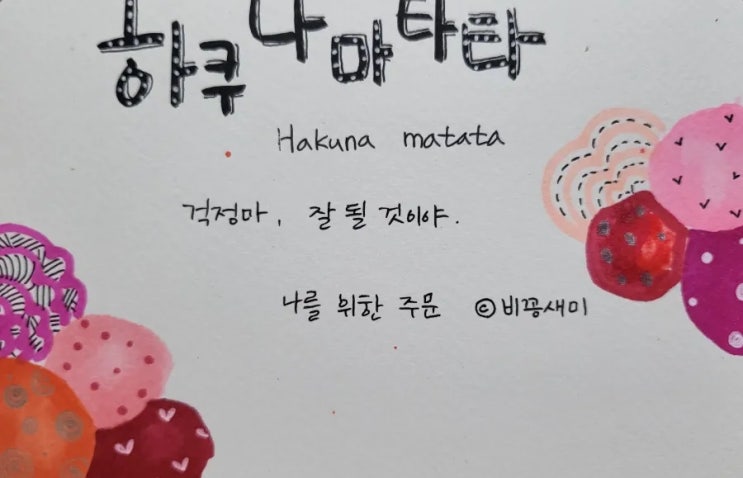 하쿠나마타타
Hakuna matata
걱정마, 잘 될 것이야.
나를 위한 주문 ©비꽁새미